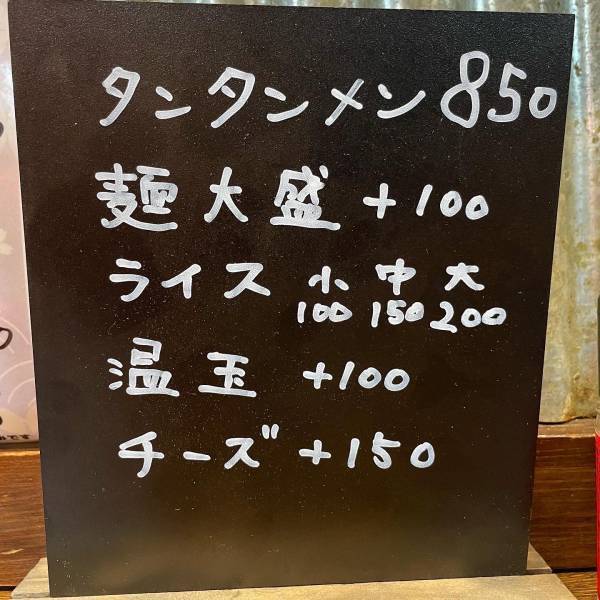 タンタンメン 850
麺大盛 +100
ライス 小 中 大
100 150 200
温玉 +100
チーズ +150